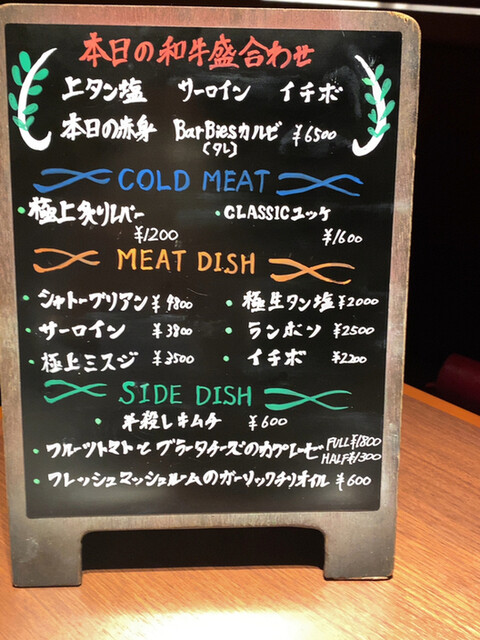 本日の和牛盛合わせ
上タン塩 サーロイン イチボ
本日の赤身 BarBiesカルビ ¥6500
(タレ)
COLD MEAT
・極上炙りレバー ・CLASSICユッケ
¥1200 ¥1600
MEAT DISH
・シャトーブリアン ¥4800 ・極生タン塩 ¥2000
・サーロイン ¥3800 ・ランボソ ¥2500
・極上ミスジ ¥3500 ・イチボ ¥2200
SIDE DISH
・半殺しキムチ ¥600
・フルーツトマトとブラータチーズのカプレーゼ FULL¥1800
HALF¥1300
・フレッシュマッシュルームのガーリックチリオイル ¥600